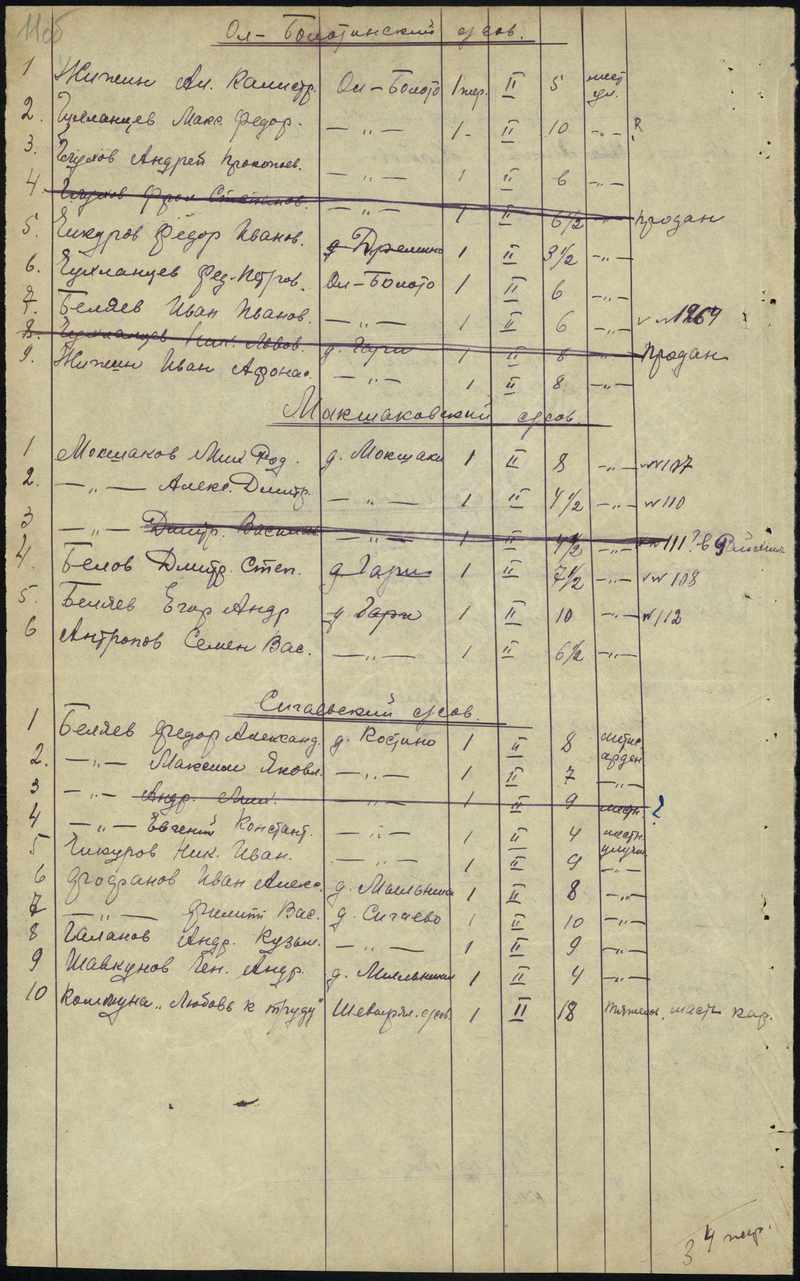 110б
Ол-Болотинский с/сов.
1 Жижин Ал. Калистр. Ол-Болото 1 жер. II 5 мест ул.
2. Чухланцев Макс Федор. —„— 1- II 10 -„- ?
3. Глухов Андрей Прокопьев. —„— 1 II 6 -„-
4 Глухов Фрол Степанов. —„— 1 II 6½ -„- продан
5. Чикуров Фёдор Иванов. д 1 II 3½ -„-
6. Чухланцев Фед. Петров. Ол-Болото 1 II 6 -„-
7. Беляев Иван Иванов. —„— 1 II 6 -„- v №1269
8. Чухланцев Львов. д. Гари 1 II 8 -„- продан
9. Жижин Иван Афонас. —„— 1 II 8 -„-
Мокшаковский с/сов.
1 Мокшаков Мих Фед. д. Мокшаки 1 II 8 -„- v№107
2. —„— Алекс. Дмитр. —„— 1 II 4½ -„- №110
3 —„— Дмитр. Васильев —„— 1 II 4½ -„- №111? в
4. Белов Дмитр. Степ. д Гари 1 II 7½ -„- v№108
5. Беляев Егор Андр д Гари 1 II 10 -„- №112
6 Антропов Семен Вас. —„— 1 II 6½ -„-
Сигаевский с/сов.
1 Беляев Федор Александ. д. Костино 1 II 8 метис арден
2. —„— Максим Яковл. —„— 1 II 7 -„-
3 —„— Андр. Мих. —„— 1 II 9 местн. ?
4 —„— Евгений Констант. —„— 1 II 4 местн. улучш
5 Чикуров Ник. Иван. —„— 1 II 9 -„-
6 Феофанов Иван Алекс. д. Мыльники 1 II 8 -„-
7 —„— Филипп Вас. д. Сигаево 1 II 10 -„-
8 Галанов Андр. Кузьм. —„— 1 II 9 -„-
9 Шавкунов Ген. Андр. д. Мыльники 1 II 4 -„-
10 Коммуна „Любовь к труду" с/сов. 1 II 18 масть кар.
34 жер.